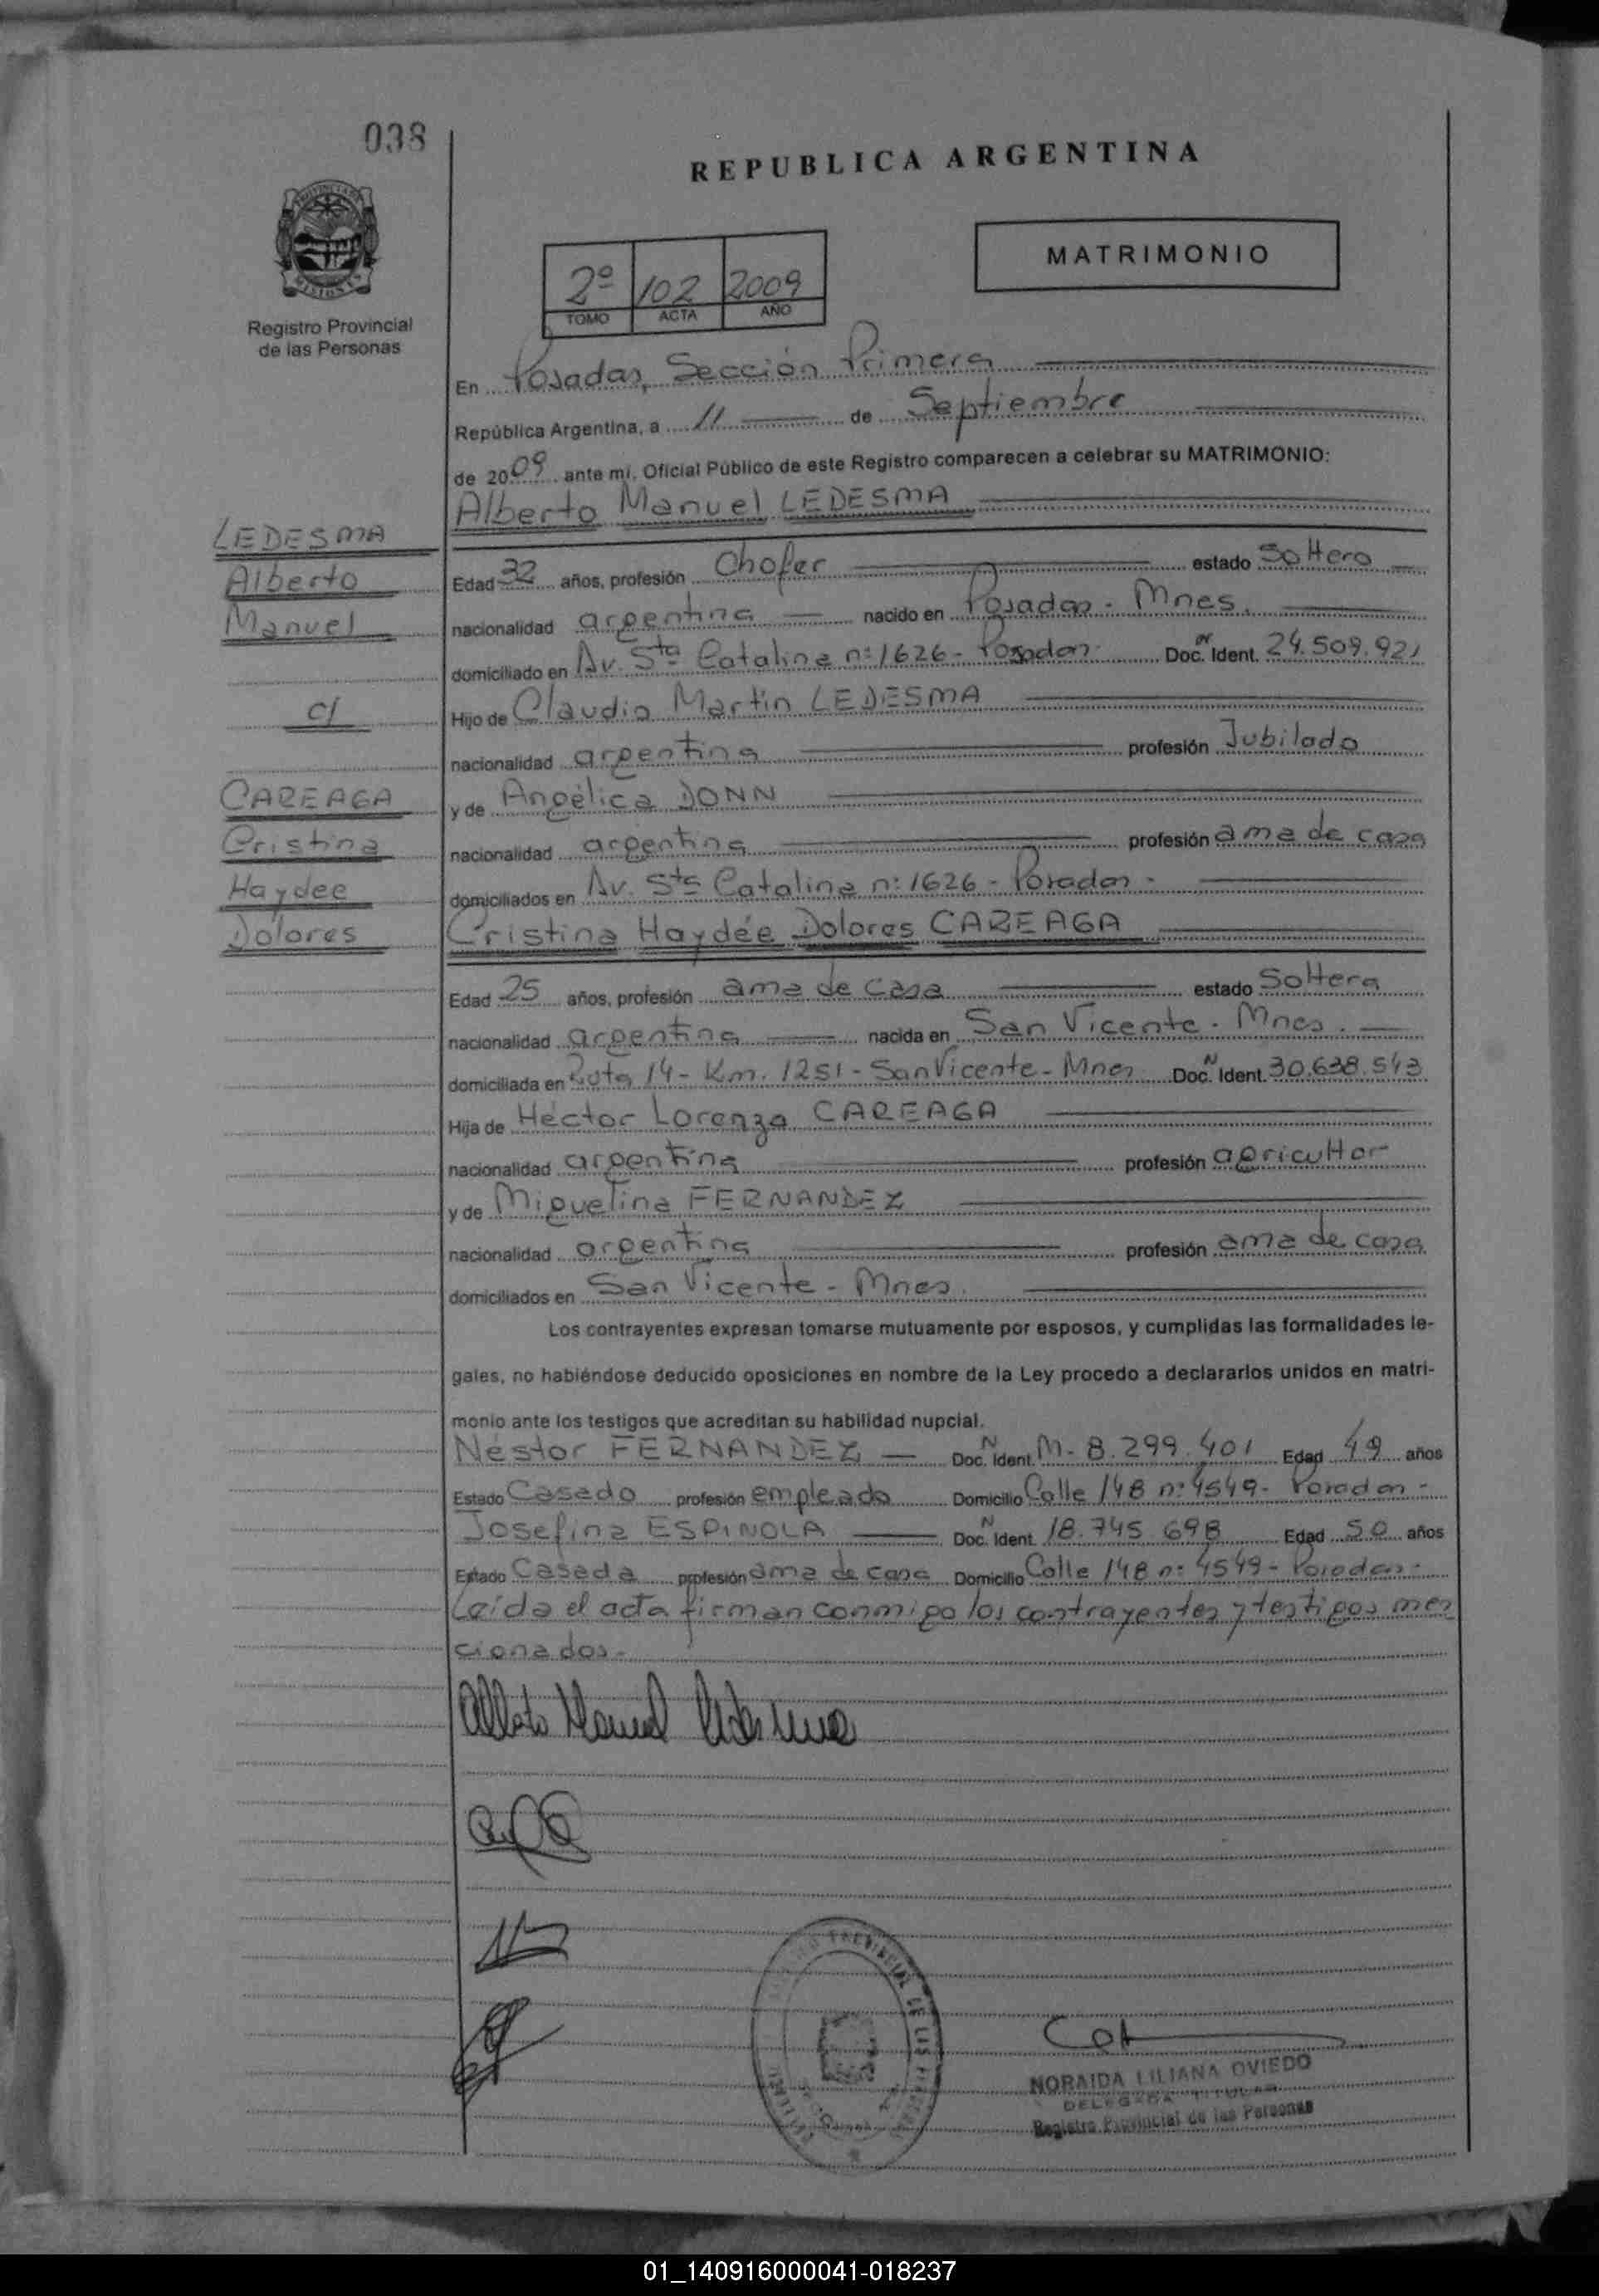 038
REPUBLICA ARGENTINA
MATRIMONIO
2º 102 2009
TOMO ACTA AÑO
Registro Provincial
de las Personas
En Posadas, Sección Primera
República Argentina, a 11 de Septiembre
de 2009 ante mi, Oficial Público de este Registro comparecen a celebrar su MATRIMONIO:
Alberto Manuel LEDESMA
LEDESMA
Alberto
Manuel
c/
CAREAGA
Cristina
Haydee
Dolores
Edad 32 años, profesión Chofer estado Soltero
nacionalidad argentina nacido en Posadas - Mnes.
domiciliado en Av. Sta Catalina nº 1626 - Posadas Doc. Ident. 24.509.921
Hijo de Claudio Martín LEDESMA
nacionalidad argentina profesión Jubilado
y de Angélica DONN
nacionalidad argentina profesión ama de casa
domiciliados en Av. Sta Catalina nº 1626 - Posadas -
Cristina Haydée Dolores CAREAGA
Edad 25 años, profesión ama de casa estado Soltera
nacionalidad argentina nacida en San Vicente - Mnes.
domiciliada en Ruta 14 - Km. 1251 - San Vicente - Mnes Doc. N Ident. 30.638.543
Hija de Héctor Lorenzo CAREAGA
nacionalidad argentina profesión agricultor
y de Miguelina FERNANDEZ
nacionalidad argentina profesión ama de casa
domiciliados en San Vicente - Mnes.
Los contrayentes expresan tomarse mutuamente por esposos, y cumplidas las formalidades le-
gales, no habiéndose deducido oposiciones en nombre de la Ley procedo a declararlos unidos en matri-
monio ante los testigos que acreditan su habilidad nupcial.
Néstor FERNANDEZ Doc. N Ident. M- 8.299.401 Edad 49 años
Estado Casado profesión empleado Domicilio Calle 148 nº 4549 - Posadas -
Josefina ESPINOLA Doc. N Ident. 18.745 698 Edad 50 años
Estado Casada profesión ama de casa Domicilio Calle 148 nº 4549 - Posadas -
Leída el acta firman conmigo los contrayentes y testigos men
cionados.-
Alberto Manuel Ledesma
NORAIDA LILIANA OVIEDO
DELEGADA TITULAR
Registro Provincial de las Personas
01_140916000041-018237